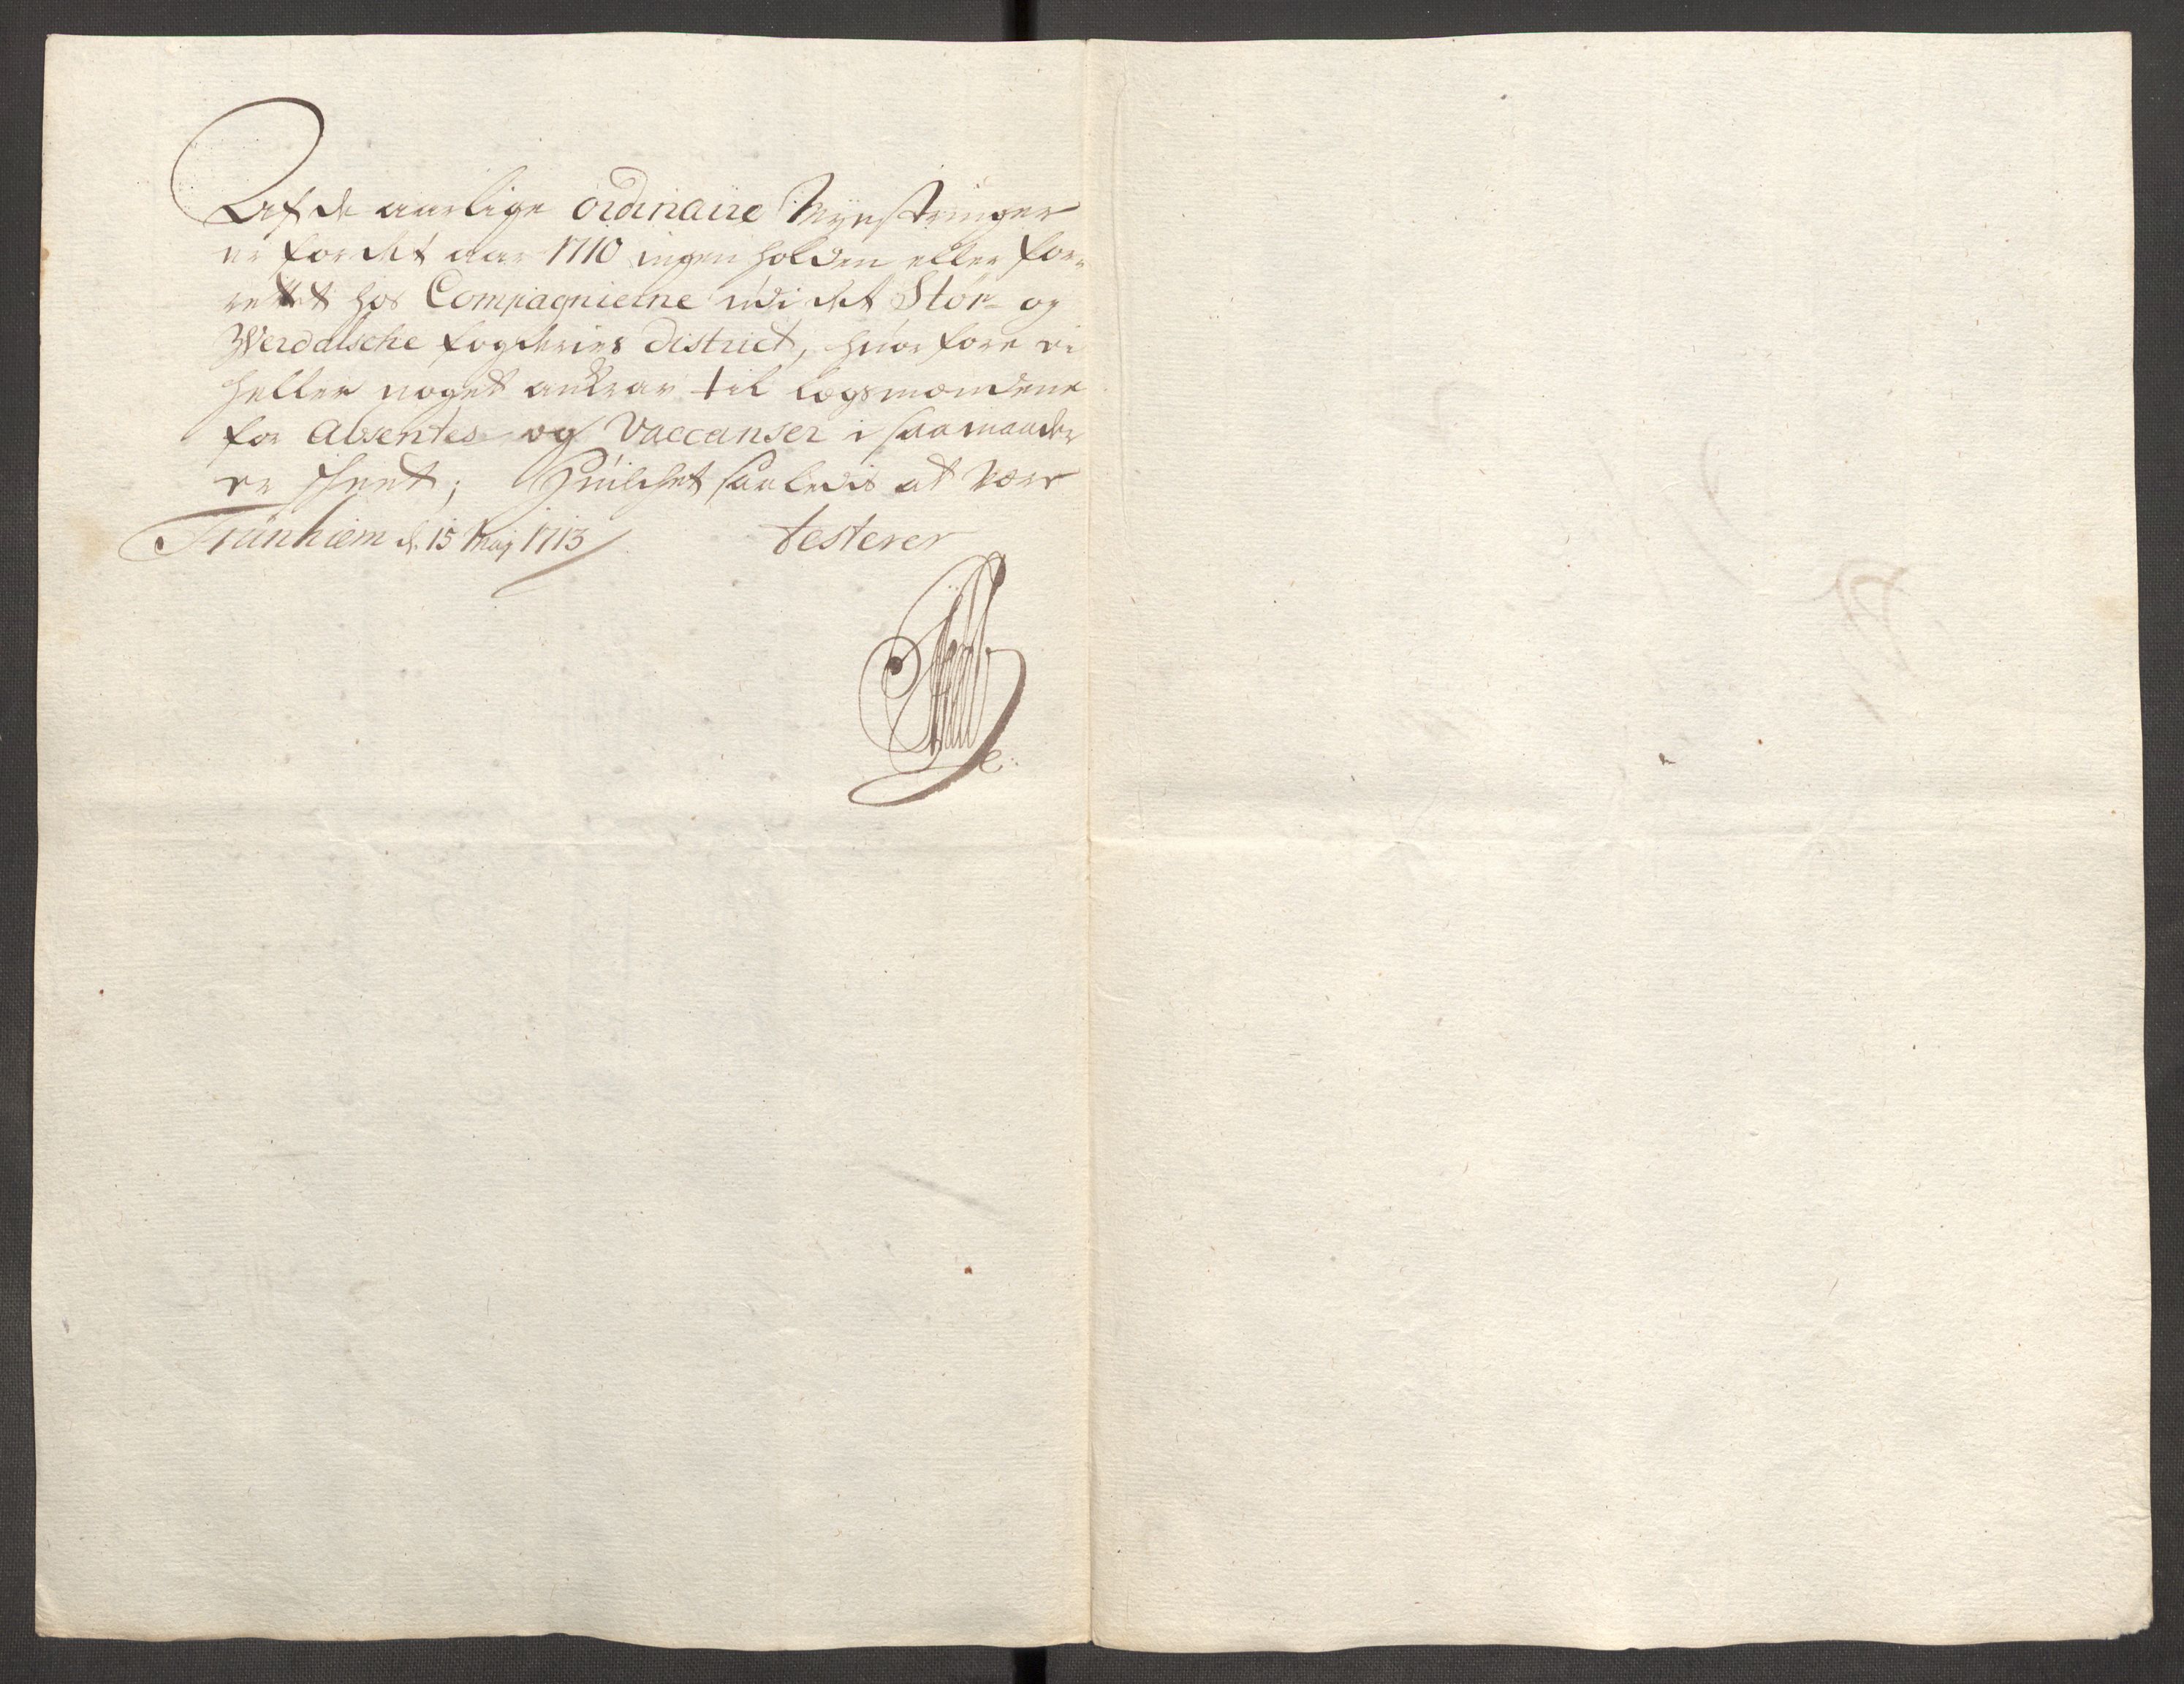 Af de aarlige ordinaire Mynstringer
er for det aar 1710 ingen holden eller for-
rettet hos Compagnierne udi det Stør- og
Werdalsche fogderies district, huorfore ei
heller noget ankrav til lægsmændene
for Absentes og Vaccanser i saa maader
er skeet; Huilchet saaledis at være
Trunhiem d. 15 Maij 1713 testerer